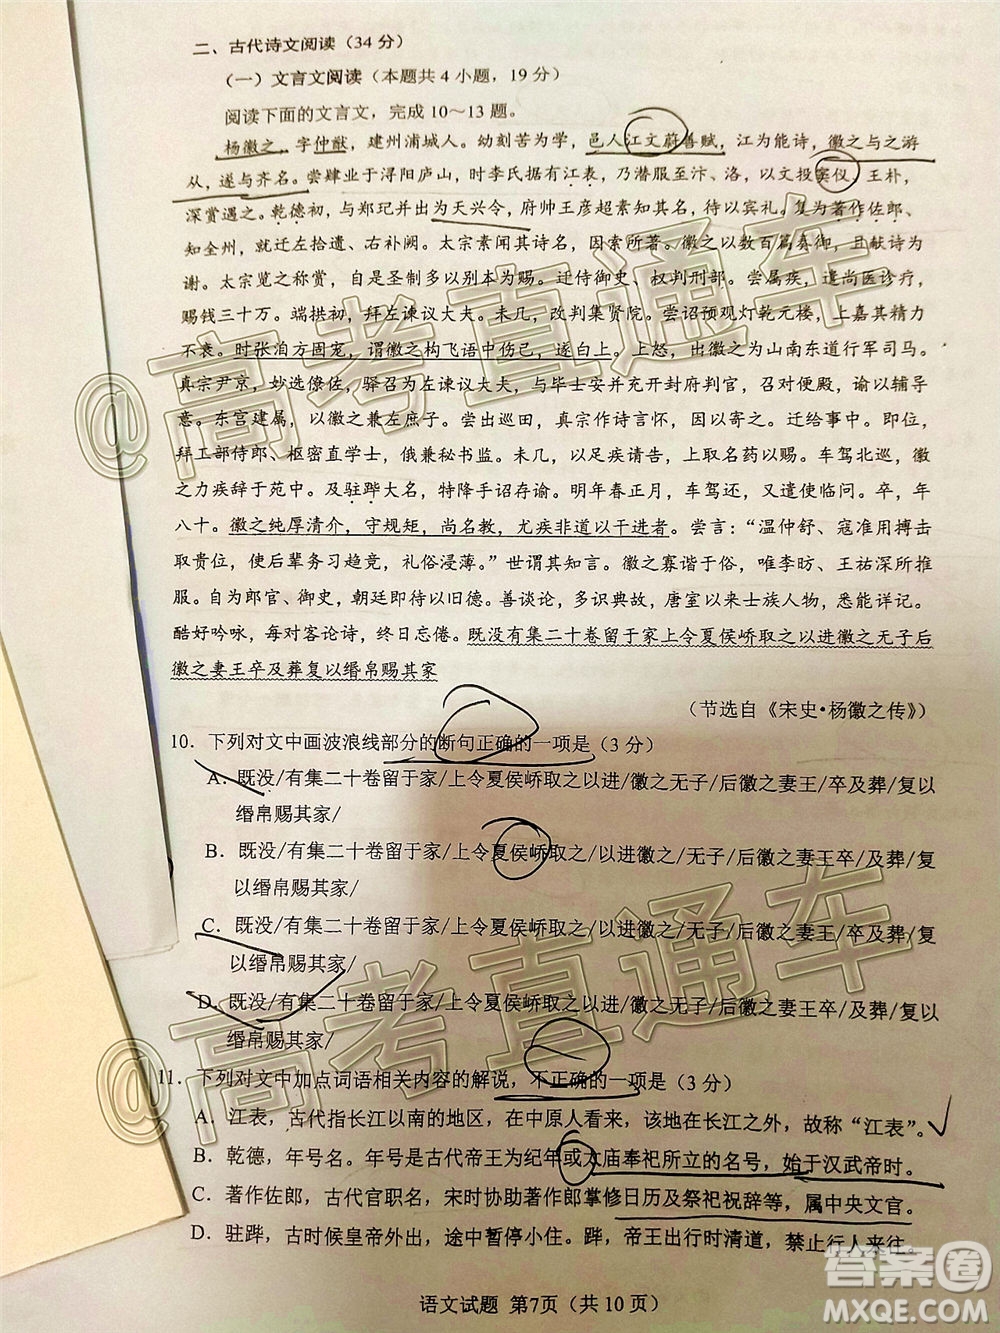 二、古代诗文阅读（34 分）
（一）文言文阅读（本题共 4 小题，19 分）
阅读下面的文言文，完成 10～13 题。
杨徽之，字仲猷，建州浦城人。幼刻苦为学，邑人江文蔚善赋，江为能诗，徽之与之游
从，遂与齐名。尝肄业于浔阳庐山，时李氏据有江表，乃潜服至汴、洛，以文投窦仪、王朴，
深赏遇之。乾德初，与郑玘并出为天兴令，府帅王彦超素知其名，待以宾礼。复为著作佐郎、
知全州，就迁左拾遗、右补阙。太宗素闻其诗名，因索所著。徽之以数百篇奏御，且献诗为
谢。太宗览之称赏，自是圣制多以别本为赐。迁侍御史、权判刑部。尝属疾，遣尚医诊疗，
赐钱三十万。端拱初，拜左谏议大夫。未几，改判集贤院。尝诏预观灯乾元楼，上嘉其精力
不衰。时张洎方固宠，谓徽之构飞语中伤已，遂白上。上怒，出徽之为山南东道行军司马。
真宗尹京，妙选僚佐，驿召为左谏议大夫，与毕士安并充开封府判官，召对便殿，谕以辅导
意。东宫建属，以徽之兼左庶子。尝出巡田，真宗作诗言怀，因以寄之。及即位，
拜工部侍郎、枢密直学士，俄兼秘书监。未几，以足疾请告，上取名药以赐。车驾北巡，徽
之力疾辞于苑中。及驻跸大名，特降手诏存谕。明年春正月，车驾还，又遣使临问。卒，年
八十。徽之纯厚清介，守规矩，尚名教，尤疾非道以干进者。尝言：“温仲舒、寇准用搏击
取贵位，使后辈务习趋竞，礼俗浸薄。”世谓其知言。徽之寡谐于俗，唯李昉、王祐深所推
服。自为郎官、御史，朝廷即待以旧德。善谈论，多识典故，唐室以来士族人物，悉能详记。
酷好吟咏，每对客论诗，终日忘倦。既没有集二十卷留于家上令夏侯峤取之以进徽之无子后
徽之妻王卒及葬复以缗帛赐其家
（节选自《宋史·杨徽之传》）
10．下列对文中画波浪线部分的断句正确的一项是（3 分）
A．既没/有集二十卷留于家/上令夏侯峤取之以进/徽之无子/后徽之妻王/卒及葬/复以
缗帛赐其家/
B．既没/有集二十卷留于家/上令夏侯峤取之/以进徽之/无子/后徽之妻王卒/及葬/复
以缗帛赐其家/
C．既没/有集二十卷留于家/上令夏侯峤取之/以进徽之/无子/后徽之妻王/卒及葬/复
以缗帛赐其家/
D．既没/有集二十卷留于家/上令夏侯峤取之以进/徽之无子/后徽之妻王卒/及葬/复
以缗帛赐其家/
11．下列对文中加点词语相关内容的解说，不正确的一项是（3 分）
A．江表，古代指长江以南的地区，在中原人看来，该地在长江之外，故称“江表”。
B．乾德，年号名。年号是古代帝王为纪年或太庙奉祀所立的名号，始于汉武帝时。
C．著作佐郎，古代官职名，宋时协助著作郎掌修日历及祭祀祝辞等，属中央文官。
D．驻跸，古时候皇帝外出，途中暂停小住。跸，帝王出行时清道，禁止行人来往。
语文试题 第7页（共 10 页）
@高考直通车
@高考直通车
答案圈
MXQE.COM